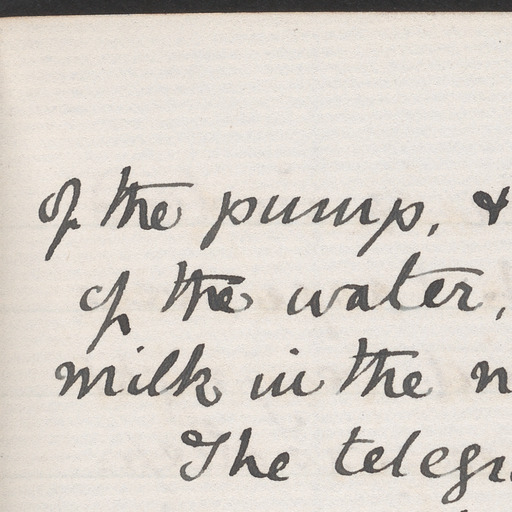 of the pump, &
of the water,
milk in the
The telegr